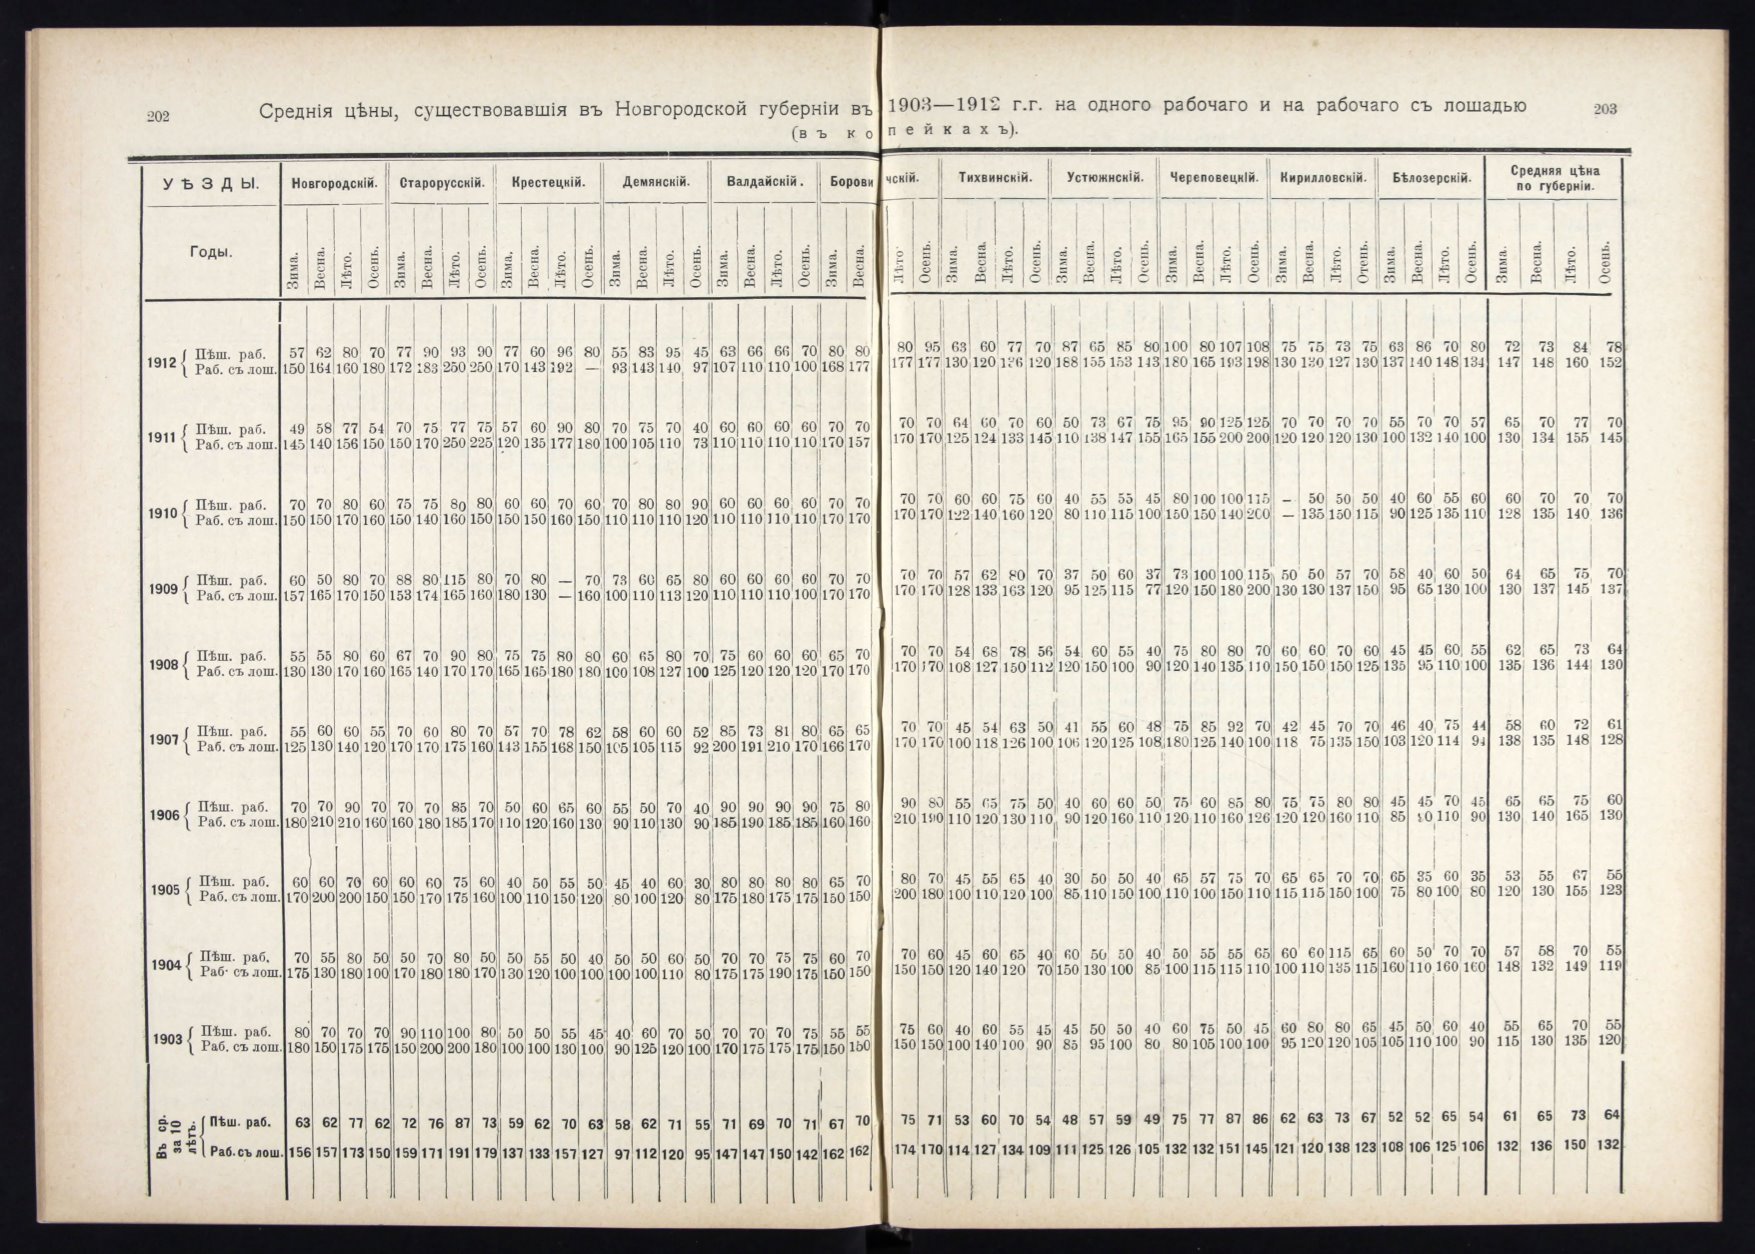 202 Среднія цѣны, существовавшія въ Новгородской губерніи въ 1903—1912 г.г. на одного рабочаго и на рабочаго съ лошадью 203
(въ копейкахъ).
УѢЗДЫ. Новгородскій. Старорусскій. Крестецкій. Демянскій. Валдайскій. Боровичскій. Тихвинскій. Устюжнскій. Череповецкій. Кирилловскій. Бѣлозерскій. Средняя цѣна
по губерніи.
Годы. Зима. Весна. Лѣто. Осень. Зима. Весна. Лѣто. Осень. Зима. Весна. Лѣто. Осень. Зима. Весна. Лѣто. Осень. Зима. Весна. Лѣто. Осень. Зима. Весна. Лѣто Осень. Зима. Весна. Лѣто. Осень. Зима. Весна. Лѣто. Осень. Зима. Весна. Лѣто. Осень. Зима. Весна. Лѣто. Отень. Зима. Весна. Лѣто. Осень. Зима. Весна. Лѣто. Осень.
1912 Пѣш. раб. 57 62 80 70 77 90 93 90 77 60 96 80 55 83 95 45 63 66 66 70 80 80 80 95 63 60 77 70 87 65 85 80 100 80 107 108 75 75 73 75 63 86 70 80 72 73 84 78
Раб. съ лош. 150 164 160 180 172 183 250 250 170 143 192 — 93 143 140 97 107 110 110 100 168 177 177 177 130 120 136 120 188 155 153 143 180 165 193 198 130 130 127 130 137 140 148 134 147 148 160 152
1911 Пѣш. раб. 49 58 77 54 70 75 77 75 57 60 90 80 70 75 70 40 60 60 60 60 70 70 70 70 64 60 70 60 50 73 67 75 95 90 125 125 70 70 70 70 55 70 70 57 65 70 77 70
Раб. съ лош. 145 140 156 150 150 170 250 225 120 135 177 180 100 105 110 73 110 110 110 110 170 157 170 170 125 124 133 145 110 138 147 155 165 155 200 200 120 120 120 130 100 132 140 100 130 134 155 145
1910 Пѣш. раб. 70 70 80 60 75 75 80 80 60 60 70 60 70 80 80 90 60 60 60 60 70 70 70 70 60 60 75 60 40 55 55 45 80 100 100 115 — 50 50 50 40 60 55 60 60 70 70 70
Раб. съ лош. 150 150 170 160 150 140 160 150 150 150 160 150 110 110 110 120 110 110 110 110 170 170 170 170 122 140 160 120 80 110 115 100 150 150 140 200 — 135 150 115 90 125 135 110 128 135 140 136
1909 Пѣш. раб. 60 50 80 70 88 80 115 80 70 80 — 70 73 60 65 80 60 60 60 60 70 70 70 70 57 62 80 70 37 50 60 37 73 100 100 115 50 50 57 70 58 40 60 50 64 65 75 70
Раб. съ лош. 157 165 170 150 153 174 165 160 180 130 — 160 100 110 113 120 110 110 110 100 170 170 170 170 128 133 163 120 95 125 115 77 120 150 180 200 130 130 137 150 95 65 130 100 130 137 145 137
1908 Пѣш. раб. 55 55 80 60 67 70 90 80 75 75 80 80 60 65 80 70 75 60 60 60 65 70 70 70 54 68 78 56 54 60 55 40 75 80 80 70 60 60 70 60 45 45 60 55 62 65 73 64
Раб. съ лош. 130 130 170 160 165 140 170 170 165 165 180 180 100 108 127 100 125 120 120 120 170 170 170 170 108 127 150 112 120 150 100 90 120 140 135 110 150 150 150 125 135 95 110 100 135 136 144 130
1907 Пѣш. раб. 55 60 60 55 70 60 80 70 57 70 78 62 58 60 60 52 85 73 81 80 65 65 70 70 45 54 63 50 41 55 60 48 75 85 92 70 42 45 70 70 46 40 75 44 58 60 72 61
Раб. съ лош. 125 130 140 120 170 170 175 160 143 155 168 150 105 105 115 92 200 191 210 170 166 170 170 170 100 118 126 100 106 120 125 108 180 125 140 100 118 75 135 150 103 120 114 94 138 135 148 128
1906 Пѣш. раб. 70 70 90 70 70 70 85 70 50 60 65 60 55 50 70 40 90 90 90 90 75 80 90 80 55 65 75 50 40 60 60 50 75 60 85 80 75 75 80 80 45 45 70 45 65 65 75 60
Раб. съ лош. 180 210 210 160 160 180 185 170 110 120 160 130 90 110 130 90 185 190 185 185 160 160 210 190 110 120 130 110 90 120 160 110 120 110 160 126 120 120 160 110 85 110 90 130 140 165 130
1905 Пѣш. раб. 60 60 70 60 60 60 75 60 40 50 55 50 45 40 60 30 80 80 80 80 65 70 80 70 45 55 65 40 30 50 50 40 65 57 75 70 65 65 70 70 65 35 60 35 53 55 67 55
Раб. съ лош. 170 200 200 150 150 170 175 160 100 110 150 120 80 100 120 80 175 180 175 175 150 150 200 180 100 110 120 100 85 110 150 100 110 100 150 110 115 115 150 100 75 80 100 80 120 130 155 123
1904 Пѣш. раб. 70 55 80 50 50 70 80 50 50 55 50 40 50 50 60 50 70 70 75 75 60 70 70 60 45 60 65 40 60 50 50 40 50 55 55 65 60 60 115 65 60 50 70 70 57 58 70 55
Раб· съ лош. 175 130 180 100 170 180 180 170 130 120 100 100 100 100 110 80 175 175 190 175 150 150 150 150 120 140 120 70 150 130 100 85 100 115 115 110 100 110 135 115 160 110 160 160 148 132 149 119
1903 Пѣш. раб. 80 70 70 70 90 110 100 80 50 50 55 45 40 60 70 50 70 70 70 75 55 55 75 60 40 60 55 45 45 50 50 40 60 75 50 45 60 80 80 65 45 50 60 40 55 65 70 55
Раб. съ лош. 180 150 175 175 150 200 200 180 100 100 130 100 90 125 120 100 170 175 175 175 150 150 150 150 100 140 100 90 85 95 100 80 80 105 100 100 95 120 120 105 105 110 100 90 115 130 135 120
Въ ср.
за 10
лѣтъ.
Пѣш. раб. 63 62 77 62 72 76 87 73 59 62 70 63 58 62 71 55 71 69 70 71 67 70 75 71 53 60 70 54 48 57 59 49 75 77 87 86 62 63 73 67 52 52 65 54 61 65 73 64
Раб. съ лош. 156 157 173 150 159 171 191 179 137 133 157 127 97 112 120 95 147 147 150 142 162 162 174 170 114 127 134 109 111 125 126 105 132 132 151 145 121 120 138 123 108 106 125 106 132 136 150 132